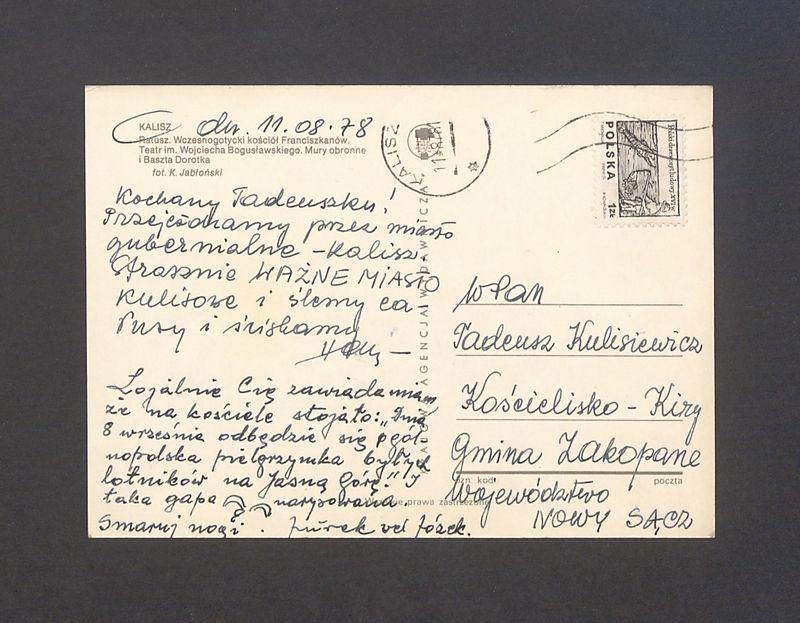 KALISZ
Ratusz. Wczesnogotycki kościół Franciszkanów.
Teatr im. Wojciecha Bogusławskiego. Mury obronne
i Baszta Dorotka
fot. K. Jabłoński
dn. 11.08.78
Kochany Tadeuszku!
Przejeżdżamy przez miasto
gubernialne - Kalisz.
Strasznie WAŻNE MIASTO
Kulisowe i ślemy ca-
łusy i ściskamy
Lojalnie Cię zawiadamiam
że na kościele stojało: „Dnia
8 września odbędzie się ogól-
nopolska pielgrzymka byłych
lotników na Jasną Górę." I
taka gapa narysowana.
Smaruj nogi. Żurek vel Józek.
KALISZ
POLSKA
1ZŁ
AGENCJA WYDAWNICZA
WPan
Tadeusz Kulisiewicz
Kościelisko - Kiry
Gmina Zakopane
ozn. kod
poczta
Województwo
NOWY SĄCZ
prawa zastrzeżone